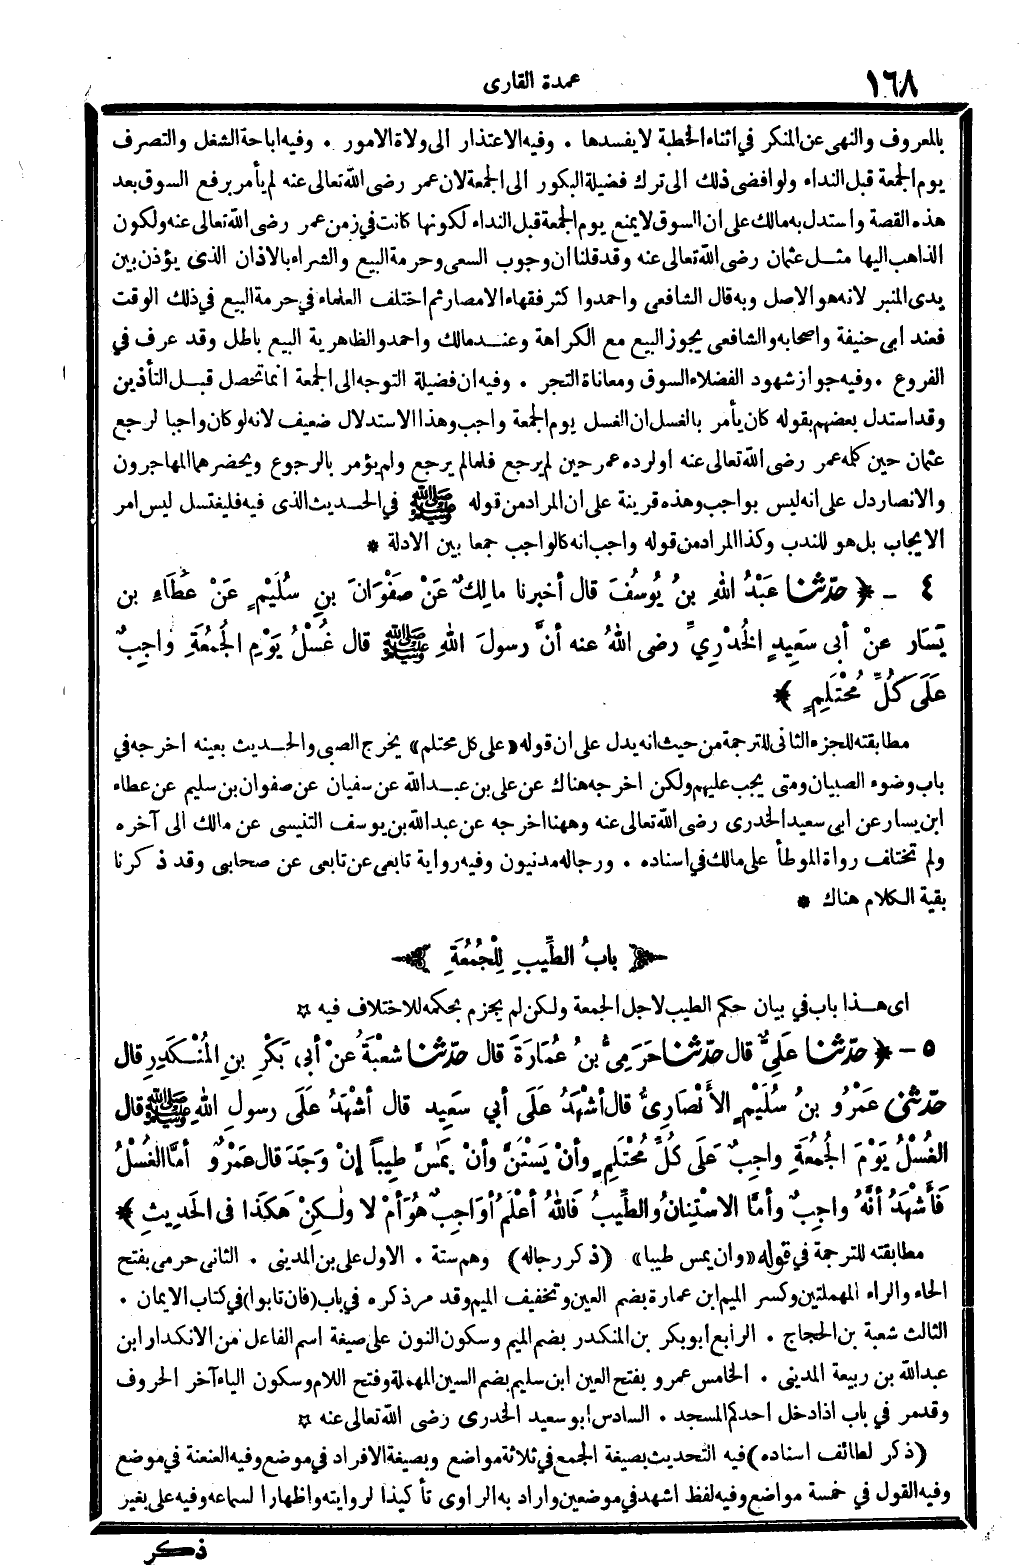 ١٦٨
عمدة القارى
بالمعروف والنهى عن المنكر في اثناء الخطبة لا يفسدها . وفيه الاعتذار الى ولاة الامور . وفيه اباحة الشغل والتصرف
يوم الجمعة قبل النداء ولو افضى ذلك الى ترك فضيلة البكور الى الجمعة لان عمر رضى الله تعالى عنه لم يأمر برفع السوق بعد
هذه القصة واستدل به مالك على ان السوق لا يمنع يوم الجمعة قبل النداء لكونها كانت في زمن عمر رضى الله تعالى عنه ولكون
الذاهب اليها مثل عثمان رضى الله تعالى عنه وقد قلنا ان وجوب السعى وحرمة البيع والشراء بالاذان الذى يؤذن بين
يدى المنبر لانه هو الاصل وبه قال الشافعى واحمد واكثر فقهاء الامصار ثم اختلف العلماء في حرمة البيع في ذلك الوقت
فعند ابى حنيفة واصحابه والشافعى يجوز البيع مع الكراهة وعند مالك واحمد والظاهرية البيع باطل وقد عرف في
الفروع . وفيه جواز شهود الفضلاء السوق ومعاناة التجر . وفيه ان فضيلة التوجه الى الجمعة انما تحصل قبل التأذين
وقد استدل بعضهم بقوله كان يأمر بالغسل ان الغسل يوم الجمعة واجب وهذا الاستدلال ضعيف لانه لو كان واجبا لرجع
عثمان حين كلمه عمر رضى الله تعالى عنه او لرده عمر حين لم يرجع فلما لم يرجع ولم يؤمر بالرجوع ويحضرهما المهاجرون
والانصار دل على انه ليس بواجب وهذه قرينة على ان المراد من قوله ﷺ في الحديث الذى فيه فليغتسل ليس امر
الايجاب بل هو للندب وكذا المراد من قوله واجب انه كالواجب جمعا بين الادلة *
٤ - ﴿ حدّثنا عَبْدُ اللهِ بنُ يُوسُفَ قال أخبرنا مالِكٌ عَنْ صَفْوَانَ بنِ سُلَيْمٍ عَنْ عَطَاءِ بن
يَسَار عنْ أبى سَعِيدٍ الخُدْرِيِّ رضى اللهُ عنه أنَّ رسولَ اللهِ ﷺ قال غُسْلُ يَوْمِ الجُمُعَةِ واجِبٌ
عَلَى كُلِّ مُحْتَلِمٍ ﴾
مطابقته للجزء الثانى للترجمة من حيث انه يدل على ان قوله «على كل محتلم» يخرج الصبى والحديث بعينه اخرجه في
باب وضوء الصبيان ومتى يجب عليهم ولكن اخرجه هناك عن على بن عبد الله عن سفيان عن صفوان بن سليم عن عطاء
ابن يسار عن ابى سعيد الخدرى رضى الله تعالى عنه وههنا اخرجه عن عبد الله بن يوسف التنيسى عن مالك الى آخره
ولم تختلف رواة الموطأ على مالك في اسناده . ورجاله مدنيون وفيه رواية تابعى عن تابعى عن صحابى وقد ذكرنا
بقية الكلام هناك *
﴿ بابُ الطِّيبِ لِلْجُمُعَةِ ﴾
اى هذا باب في بيان حكم الطيب لاجل الجمعة ولكن لم يجزم بحكمه للاختلاف فيه ☆
٥ - ﴿ حدّثنا عَلِيٌّ قال حدّثنا حَرَمِىُّ بنُ عُمَارَةَ قال حدّثنا شعْبَةُ عنْ أبى بَكْرِ بنِ المُنْكَدِرِ قال
حدّثنى عَمْرُو بنُ سُلَيْمٍ الأَنْصَارِىُّ قال أشْهَدُ عَلَى أبي سَعِيد قال أشْهَدُ عَلَى رسولِ اللهِ ﷺ قال
الغُسْلُ يَوْمَ الجُمُعَةِ واجِبٌ عَلَى كُلِّ مُحْتَلِمٍ وأنْ يَسْتَنَّ وأنْ يَمَسَّ طِيباً إنْ وجَدَ قال عَمْرٌو أمَّا الغُسْلُ
فَأَشْهَدُ أنَّهُ واجِبٌ وأمَّا الاسْتِنانُ والطِّيبُ فَاللهُ أعْلَمُ أوَاجِبٌ هُوَ أمْ لا ولٰكِنْ هكَذَا فى الحَدِيثِ ﴾
مطابقته للترجمة في قوله «وان يمس طيبا» (ذكر رجاله) وهم ستة . الاول على بن المدينى . الثانى حرمى بفتح
الحاء والراء المهملتين وكسر الميم ابن عمارة بضم العين وتخفيف الميم وقد مر ذكره في باب (فان تابوا) في كتاب الايمان .
الثالث شعبة بن الحجاج . الرابع ابو بكر بن المنكدر بضم الميم وسكون النون على صيغة اسم الفاعل من الانكدار ابن
عبد الله بن ربيعة المدينى . الخامس عمرو بفتح العين ابن سليم بضم السين المهملة وفتح اللام وسكون الياء آخر الحروف
وقد مر في باب اذا دخل احدكم المسجد . السادس ابو سعيد الخدرى رضى الله تعالى عنه ☆
(ذكر لطائف اسناده) فيه التحديث بصيغة الجمع في ثلاثة مواضع وبصيغة الافراد في موضع وفيه العنعنة في موضع
وفيه القول في خمسة مواضع وفيه لفظ اشهد في موضعين واراد به الراوى تأكيدا لروايته واظهارا لسماعه وفيه على بغير
ذكر